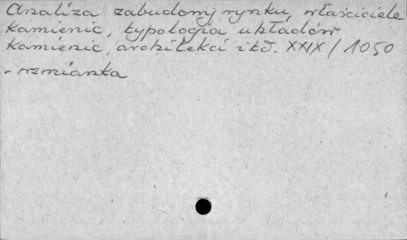 Analiza zabudowy rynku, właściciele
kamienic, typologia układów
kamienic, architekci itd. XXIX/1050
- wzmianka